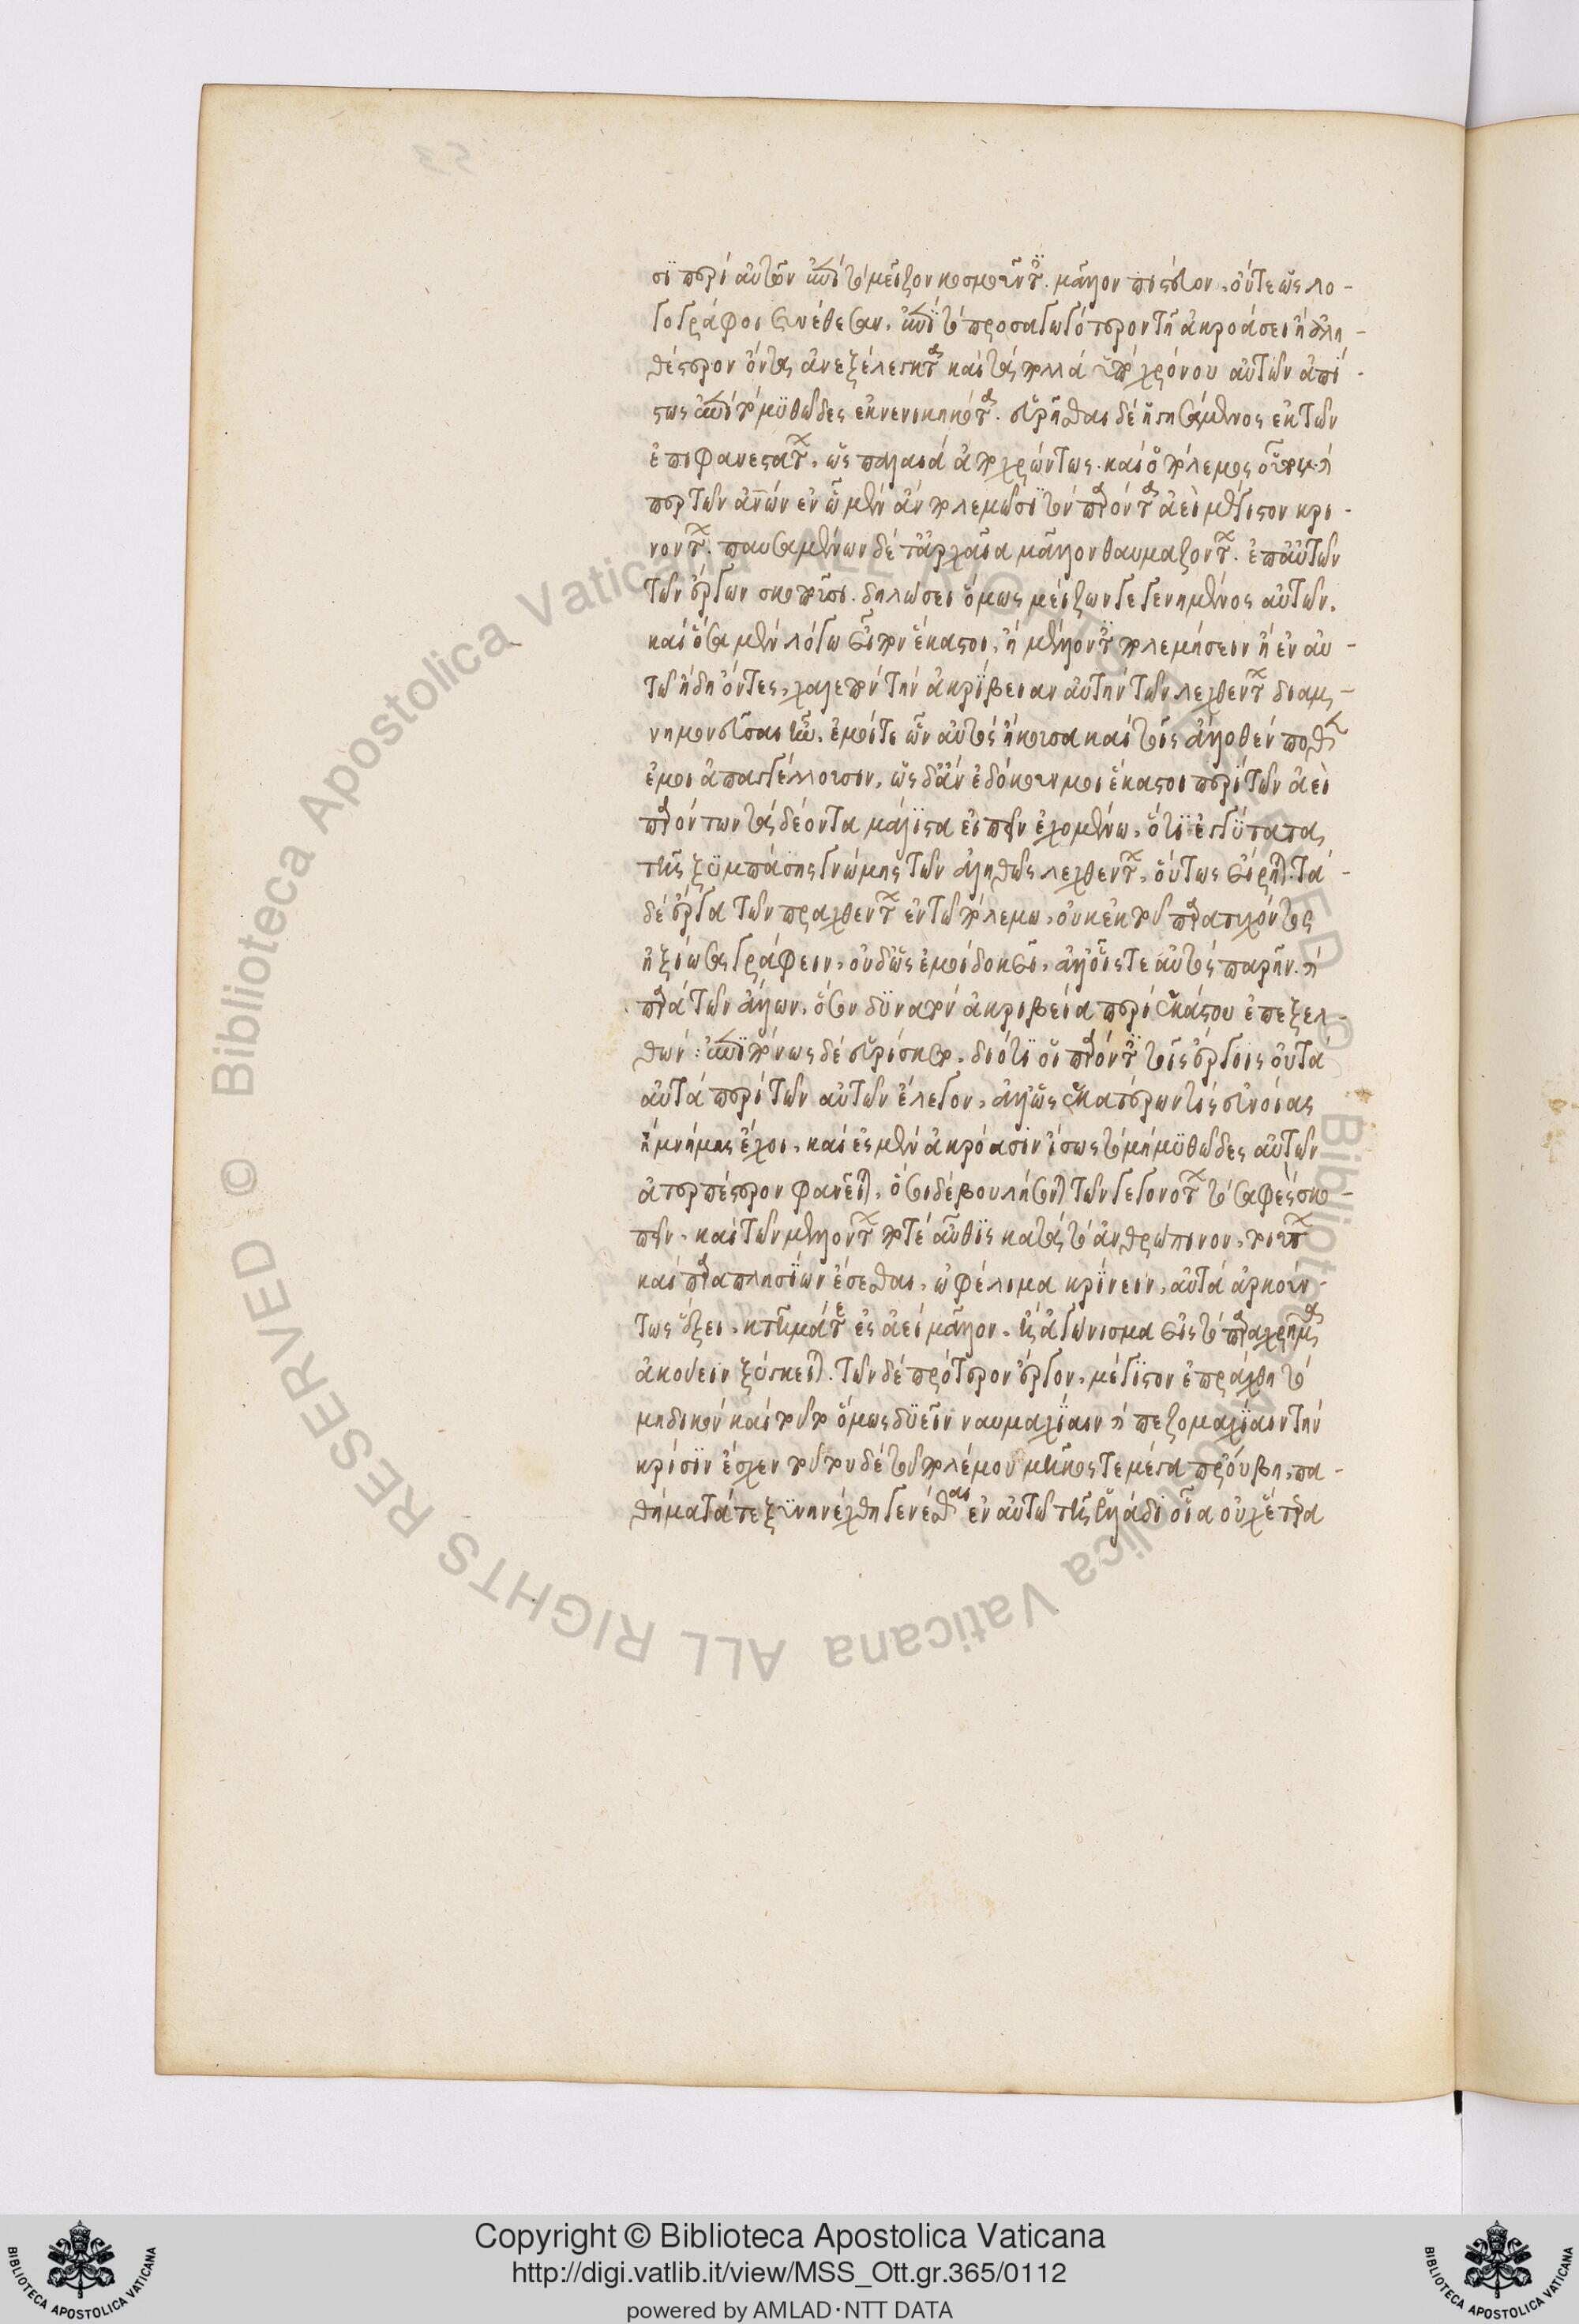 53
σϊ περὶ αὐτῶν ἐπὶ τὸ μεῖζον κοσμοῦντες. μᾶλλον πιστεύων. οὔτε ὡς λο-
γογράφοι ξυνέθεσαν. ἐπὶ τὸ προσαγωγότερον τῇ ἀκροάσει ἢ ἀλη-
θέστερον ὄντα ἀνεξέλεγκτα καὶ τὰ πολλὰ ὑπὸ χρόνου αὐτῶν ἀπί-
στως ἐπὶ τὸ μυθῶδες ἐκνενικηκότα. εὑρῆσθαι δὲ ἡγησάμενος ἐκ τῶν
ἐπιφανεστάτων. ὡς παλαιὰ ἀποχρώντως. καὶ ὁ πόλεμος οὗτος. καὶ
περ τῶν ἀνων ἐν ᾧ μὲν ἂν πολεμῶσι τὸν παρόντα ἀεὶ μέγιστον κρι-
νόντων. παυσαμένων δὲ τὰ ἀρχαῖα μᾶλλον θαυμαζόντων. ἐπ αὐτῶν
τῶν ἔργων σκοποῦσι. δηλώσει ὅμως μείζων γεγενημένος αὐτῶν.
καὶ ὅσα μὲν λόγω εἶπον ἕκαστοι. ἢ μέλλοντες πολεμήσειν ἢ ἐν αὐ-
τῶ ἤδη ὄντες. χαλεπὸν τὴν ἀκρίβειαν αὐτὴν τῶν λεχθέντων διαμ-
νημονεῦσαι ἦν. ἐμοί τε ὧν αὐτὸς ἤκουσα καὶ τοῖς ἄλλοθέν ποθεν
ἐμοι ἀπαγγέλλουσιν. ὡς δ ἂν ἐδόκουν μοι ἕκαστοι περὶ τῶν ἀεὶ
παρόντων τὰ δέοντα μάλιστα εἰπεῖν ἐχομένω. ὅτι ἐγγύτατα
τῆς ξυμπάσης γνώμης τῶν ἀληθῶς λεχθέντων. οὕτως εἴρηται. τὰ
δὲ ἔργα τῶν πραχθέντων ἐν τῶ πολέμω. οὐκ ἐκ τοῦ παρατυχόντος
ἠξίωσα γράφειν. οὐδ ὡς ἐμοὶ δοκεῖ. ἀλλ οἷς τε αὐτὸς παρῆν. καὶ
παρὰ τῶν ἄλλων. ὅσον δυνατὸν ἀκριβεία περὶ ἑκάστου ἐπεξελ-
θών: ἐπιπόνως δὲ εὑρίσκετο. διότι οἱ παρόντες τοῖς ἔργοις οὐ τὰ
αὐτὰ περὶ τῶν αὐτῶν ἔλεγον. ἀλλ ὡς ἑκατέρων τὶς εὐνοίας
ἢ μνήμης ἔχοι. καὶ ἐς μὲν ἀκρόασιν ἴσως τὸ μὴ μυθῶδες αὐτῶν
ἀτερπέστερον φανεῖται. ὅσοι δὲ βουλήσονται τῶν γεγονότων τὸ σαφὲς σκο-
πεῖν. καὶ τῶν μελλόντων ποτὲ αὖθις κατὰ τὸ ἀνθρώπινον. τοιούτων
καὶ παραπλησίων ἔσεσθαι. ὠφέλιμα κρίνειν. αὐτὰ ἀρκούν-
τως ἕξει. κτῆμά τε ἐς ἀεὶ μᾶλλον. ἢ ἀγώνισμα εἰς τὸ παραχρῆμα
ἀκούειν ξύγκειται. τῶν δὲ πρότερον ἔργον. μέγιστον ἐπράχθη τὸ
μηδικὸν καὶ τοῦτο ὅμως δυεῖν ναυμαχίαιν καὶ πεζομαχίαιν τὴν
κρίσιν ἔσχεν τούτου δὲ τοῦ πολέμου μῆκός τε μέγα προύβη. πα-
θήματά τε ξυνηνέχθη γενέσθαι ἐν αὐτῶ τῆς ἑλλάδι οἷα οὐχ ἕτερα
Biblioteca Apostolica Vaticana ALL RIGHTS RESERVED ©
Copyright © Biblioteca Apostolica Vaticana
http://digi.vatlib.it/view/MSS_Ott.gr.365/0112
powered by AMLAD·NTT DATA
BIBLIOTECA APOSTOLICA VATICANA
BIBLIOTECA APOSTOLICA VATICANA